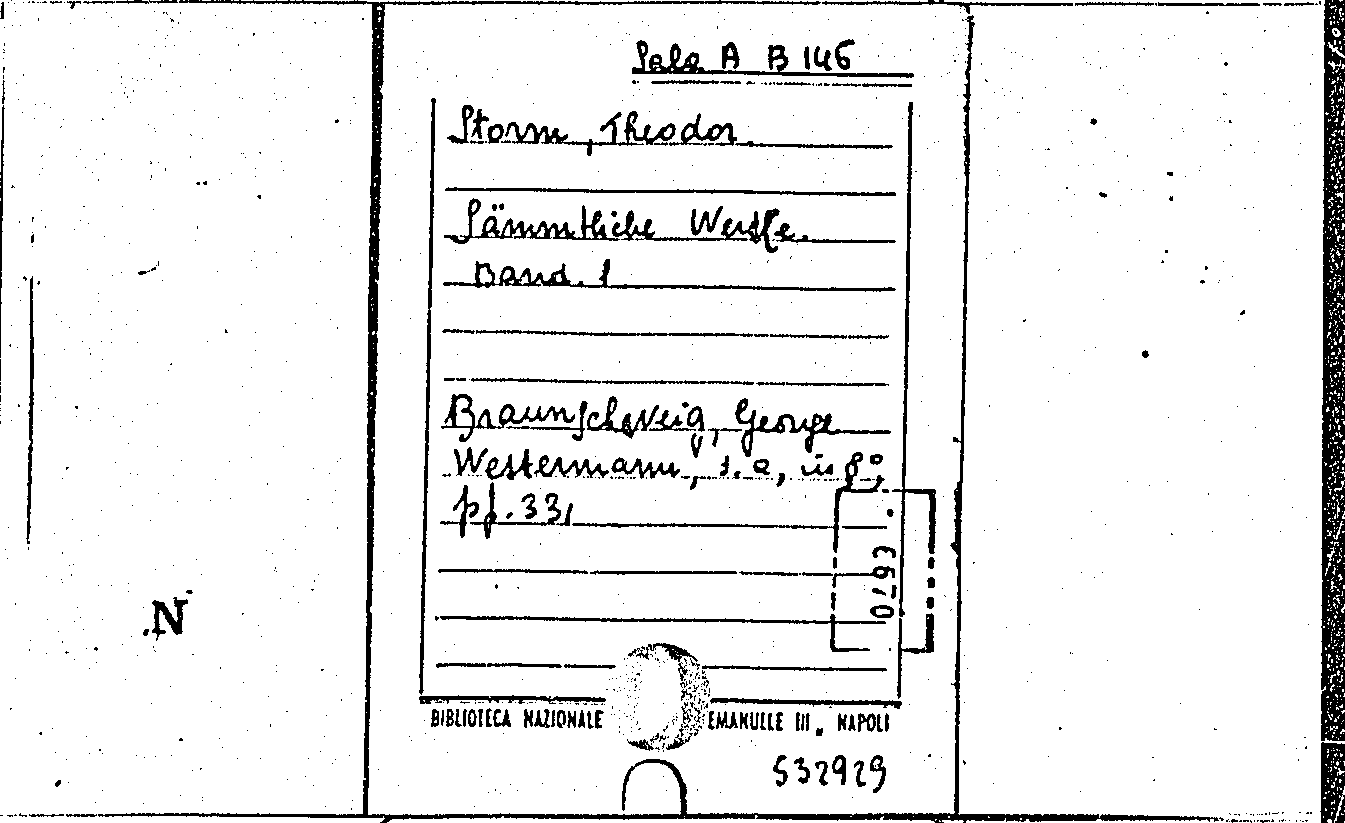 Sala A B 146
Storm, Theodor.
Sämmtliche Werke.
Band. 1
Braunschweig, George
Westermann, s.a, in 8°,
pp. 331
N
BIBLIOTECA NAZIONALE EMANUELE III. NAPOLI
532929